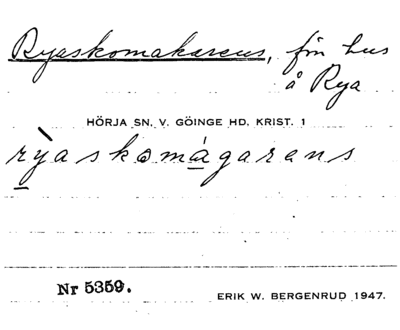 Ryaskomakarens, fın hus
å Rya
HÖRJA SN. V. GÖINGE HD. KRIST. 1
rỳaskomágarens
Nr 5359.
ERIK W. BERGENRUD 1947.